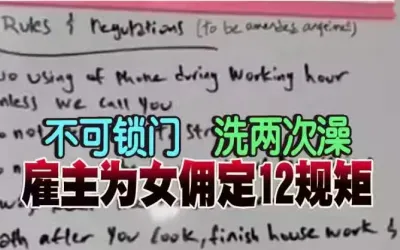 Rules & regulations (to be amended anytime)
No using of Phone during Working hour
unless We call You
不可锁门 洗两次澡
雇主为女佣定12规矩
after You Cook, finish house work &